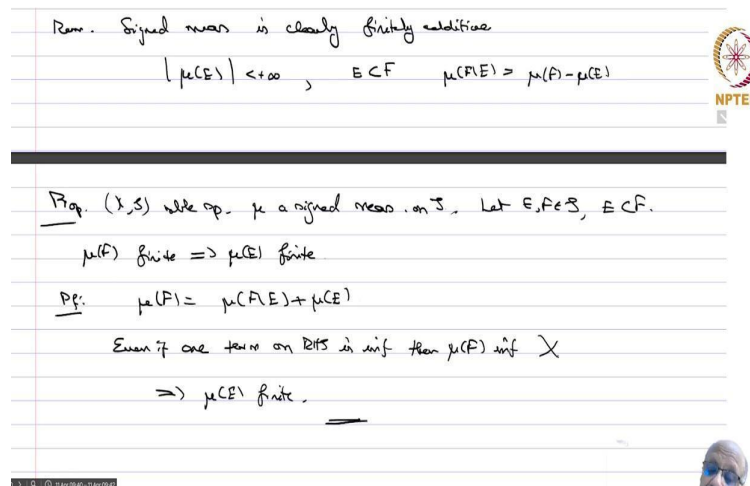 Rem. Signed meas is clearly finitely additive
|μ(E)| < +∞ , E ⊂ F μ(F\E) = μ(F) - μ(E)
NPTE
Prop. (X, S) mble sp. μ a signed meas. on S. Let E, F ∈ S, E ⊂ F.
μ(F) finite => μ(E) finite
Pf: μ(F) = μ(F\E) + μ(E)
Even if one term on RHS is inf then μ(F) inf X
=> μ(E) finite.